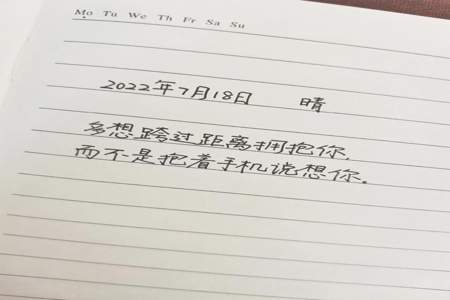 Mo Tu We Th Fr Sa Su
2022年7月18日 晴
多想跨过距离拥抱你.
而不是抱着手机说想你.